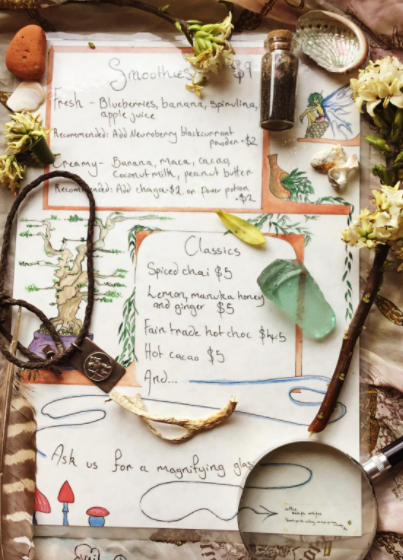 Smoothies $9
Fresh - Blueberries, banana, spirulina,
apple juice
Recommended: Add Neuroberry blackcurrant
powder +$2
Creamy - Banana, maca, cacao,
Coconut milk, peanut butter
Recommended: Add chaga+$2 or Power potion
+$2
Classics
Spiced chai $5
Lemon, manuka honey
and ginger $5
Fair trade hot choc $4.5
Hot cacao $5
And...
Ask us for a magnifying glass